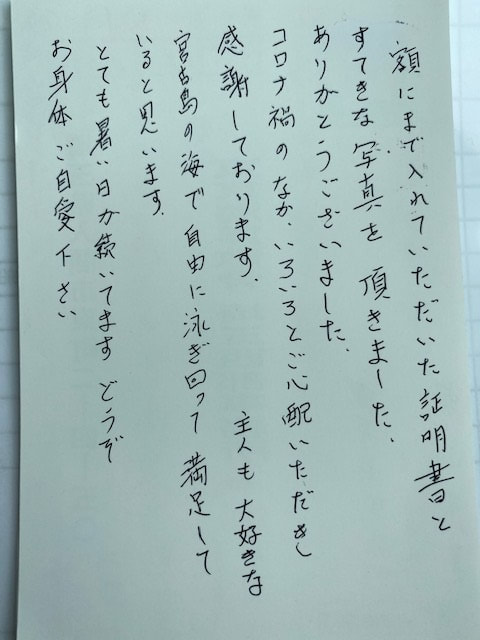 額にまで入れていただいた証明書と
すてきな写真を頂きました、
ありがとうございました、
コロナ禍のなか、いろいろとご心配いただきし
感謝しております、　主人も大好きな
宮古島の海で自由に泳ぎ回って満足して
いると思います、
とても暑い日が続いてます どうぞ
お身体ご自愛下さい